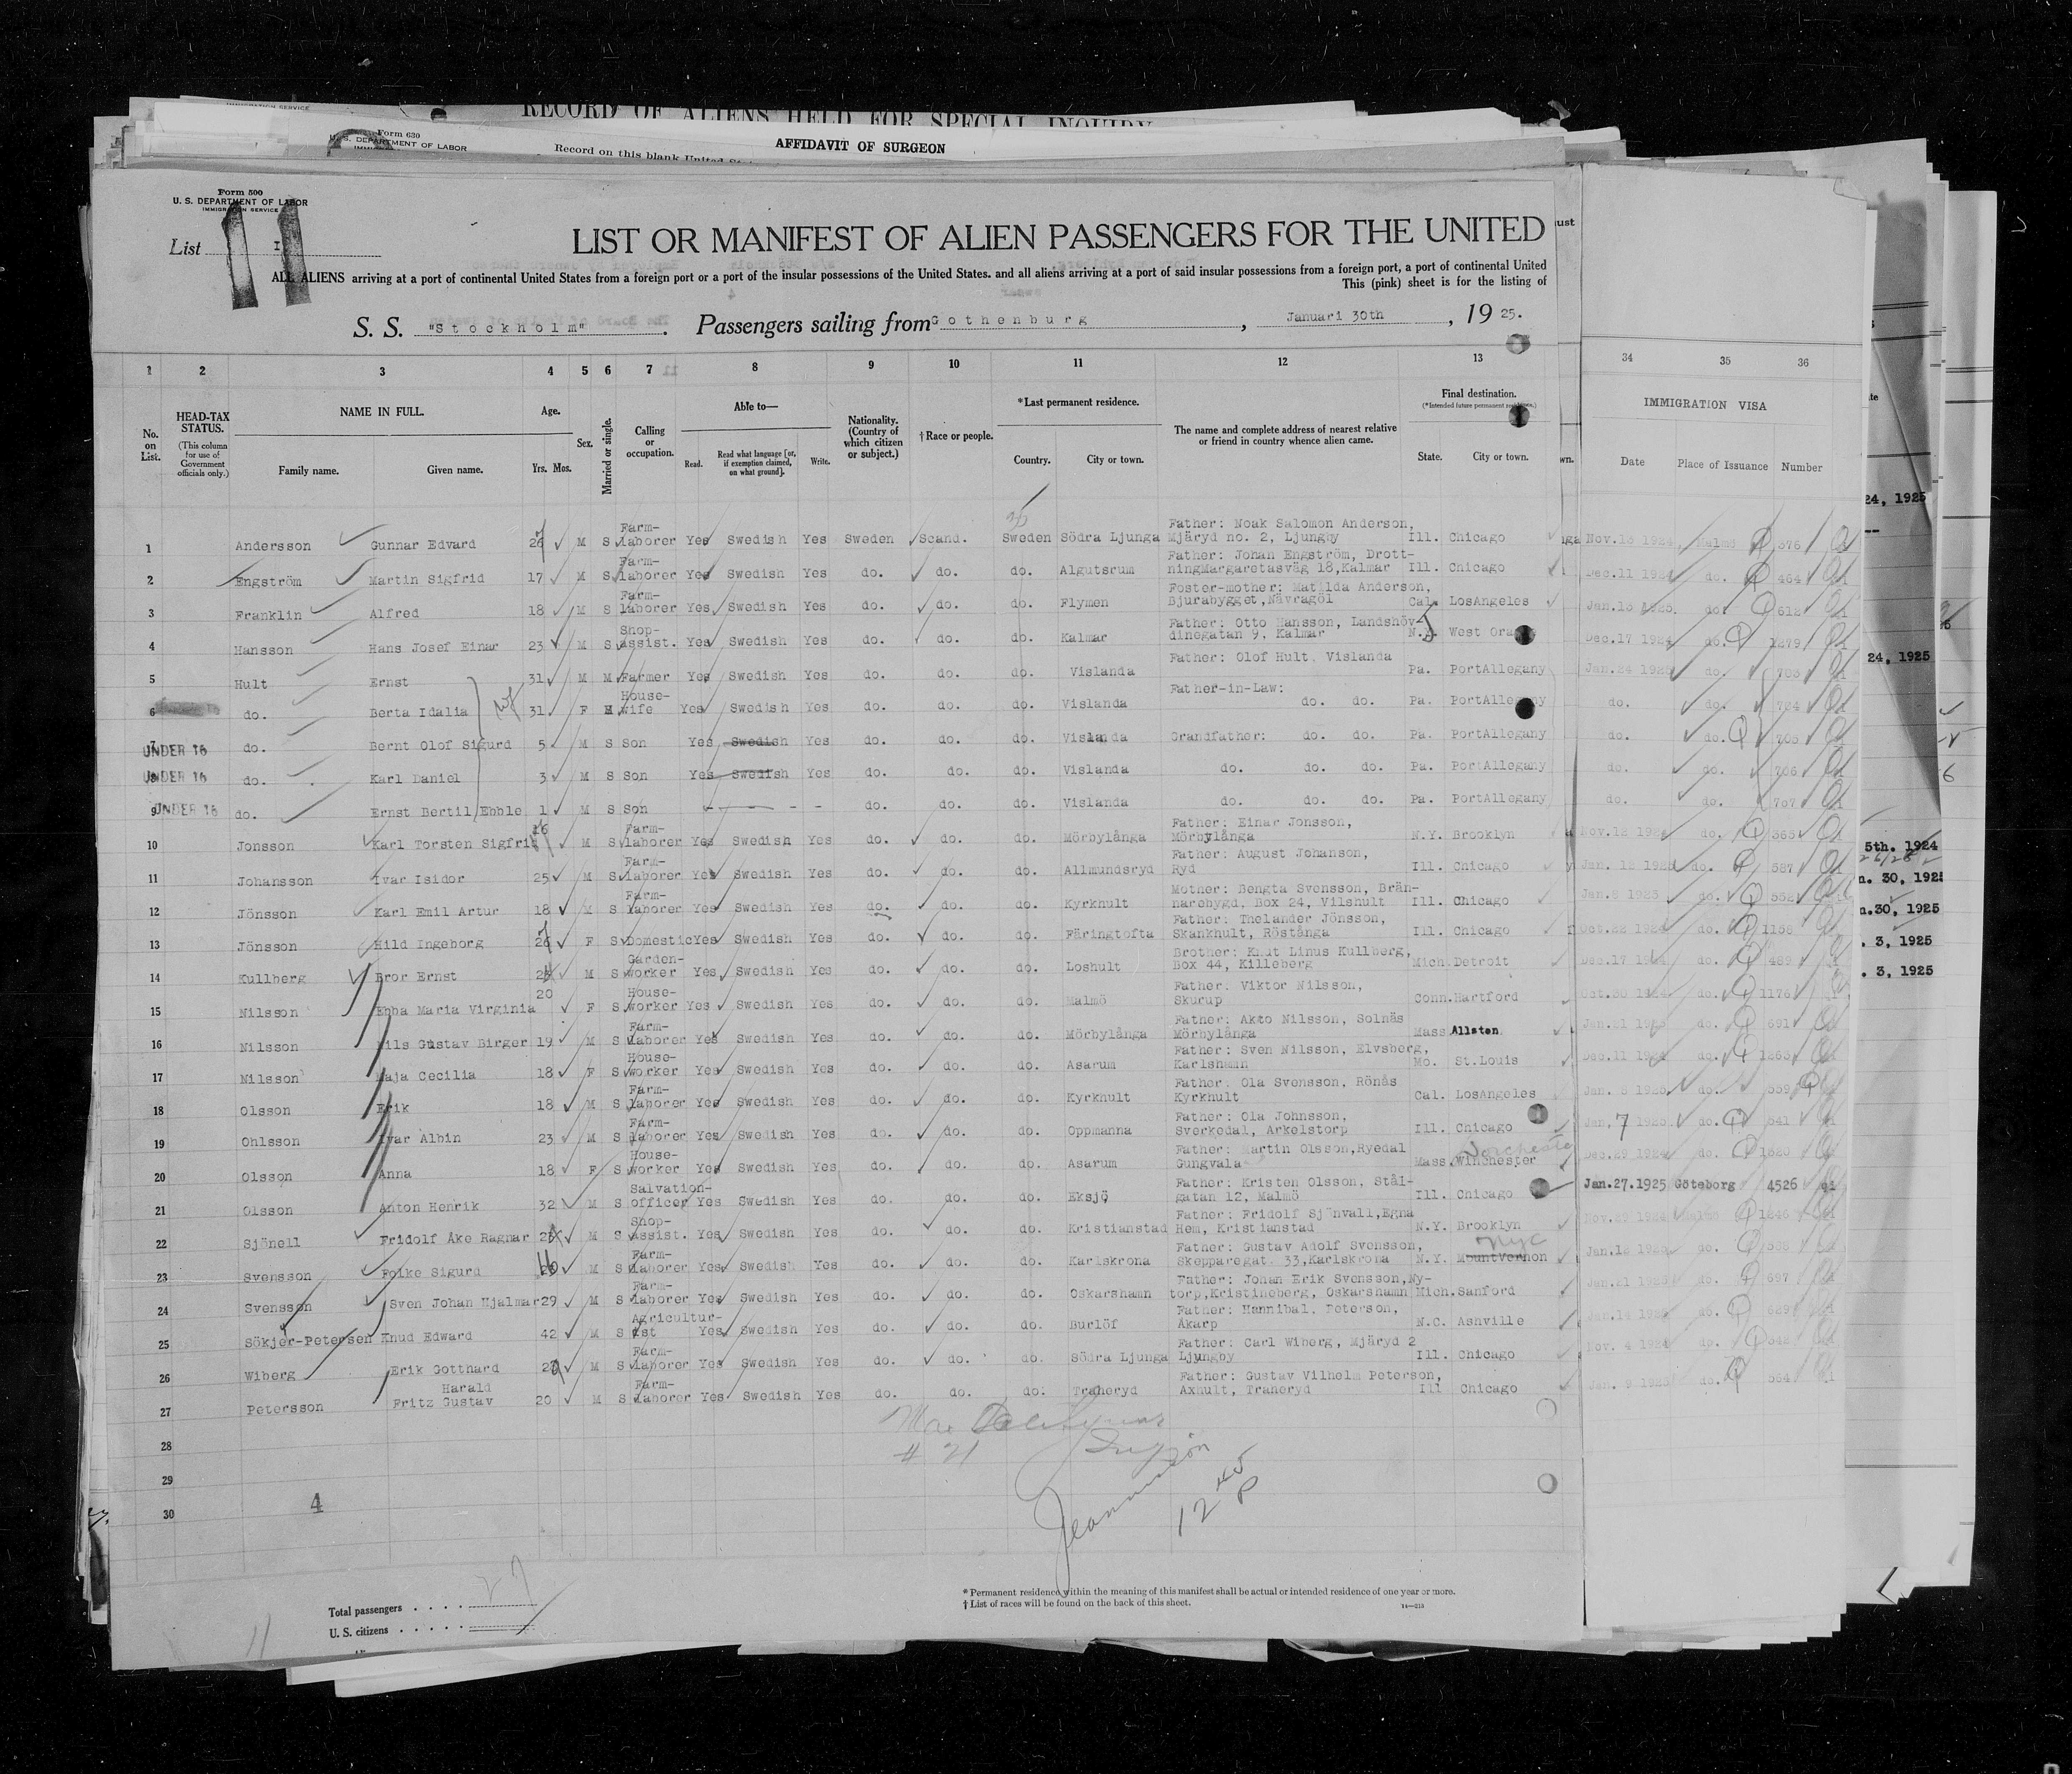 RECORD OF ALIENS HELD FOR SPECIAL INQUIRY
Form 630
U. S. DEPARTMENT OF LABOR
Record on this blank United
AFFIDAVIT OF SURGEON
Form 500
U. S. DEPARTMENT OF LABOR
IMMIGRATION SERVICE
List
11
LIST OR MANIFEST OF ALIEN PASSENGERS FOR THE UNITED
ALL ALIENS arriving at a port of continental United States from a foreign port or a port of the insular possessions of the United States. and all aliens arriving at a port of said insular possessions from a foreign port, a port of continental United
This (pink) sheet is for the listing of
S. S. "Stockholm". Passengers sailing from Gothenburg, Januari 30th, 1925.
1 2 3 4 5 6 7 8 9 10 11 12 13 34 35 36
No. on List. HEAD-TAX STATUS. (This column for use of Government officials only.) NAME IN FULL. Family name. Given name. Age. Yrs. Mos. Sex. Married or single. Calling or occupation. Able to— Read. Read what language [or, if exemption claimed, on what ground]. Write. Nationality. (Country of which citizen or subject.) †Race or people. *Last permanent residence. Country. City or town. The name and complete address of nearest relative or friend in country whence alien came. Final destination. (*Intended future permanent residence.) State. City or town. IMMIGRATION VISA Date Place of Issuance Number
1 Andersson Gunnar Edvard M S Farm-laborer Yes Swedish Yes Sweden Scand. Sweden Södra Ljunga Father: Noak Salomon Anderson, Mjäryd no. 2, Ljungby Ill. Chicago Nov.13 1924 Malmö 376
2 Engström Martin Sigfrid 17 M S Farm-laborer Yes Swedish Yes do. do. do. Algutsrum Father: Johan Engström, Drott-ningMargaretasväg 18,Kalmar Ill. Chicago Dec.11 1924 do. 464
3 Franklin Alfred 18 M S Farm-laborer Yes Swedish Yes do. do. do. Flymen Foster-mother: Matilda Anderson, Bjurabygget,Nävragöl Cal. LosAngeles Jan.13 1925 do. 612
4 Hansson Hans Josef Einar 23 M S Shop-assist. Yes Swedish Yes do. do. do. Kalmar Father: Otto Hansson, Landshöv-dinegatan 9, Kalmar West Dec.17 1924 do. 1279
5 Hult Ernst 31 M M Farmer Yes Swedish Yes do. do. do. Vislanda Father: Olof Hult, Vislanda Pa. PortAllegany Jan.24 1925 do. 703
6 do. Berta Idalia 31 F M House-wife Yes Swedish Yes do. do. do. Vislanda Father-in-Law: do. do. Pa. PortAllegany do. do. 704
7 UNDER 16 do. Bernt Olof Sigurd 5 M S Son Yes Swedish Yes do. do. do. Vislanda Grandfather: do. do. Pa. PortAllegany do. do. 705
8 UNDER 16 do. Karl Daniel 3 M S Son Yes Swedish Yes do. do. do. Vislanda do. do. do. Pa. PortAllegany do. do. 706
9 UNDER 16 do. Ernst Bertil Ebble 1 M S Son - - - do. do. do. Vislanda do. do. do. Pa. PortAllegany do. do. 707
10 Jonsson Karl Torsten Sigfrid M S Farm-laborer Yes Swedish Yes do. do. do. Mörbylånga Father: Einar Jonsson, Mörbylånga N.Y. Brooklyn Nov.12 1924 do. 365
11 Johansson Ivar Isidor 25 M S Farm-laborer Yes Swedish Yes do. do. do. Allmundsryd Father: August Johanson, Ryd Ill. Chicago Jan. 12 1925 do. 587
12 Jönsson Karl Emil Artur 18 M S Farm-laborer Yes Swedish Yes do. do. do. Kyrkhult Mother: Bengta Svensson, Brän-narebygd, Box 24, Vilshult Ill. Chicago Jan.8 1925 do. 552
13 Jönsson Hild Ingeborg F S Domestic Yes Swedish Yes do. do. do. Färingtofta Father: Thelander Jönsson, Skankhult, Röstånga Ill. Chicago Oct.22 1924 do. 1158
14 Kullberg Bror Ernst M S Garden-worker Yes Swedish Yes do. do. do. Loshult Brother: Knut Linus Kullberg, Box 44, Killeberg Mich. Detroit Dec.17 1924 do. 489
15 Nilsson Ebba Maria Virginia 20 F S House-worker Yes Swedish Yes do. do. do. Malmö Father: Viktor Nilsson, Skurup Conn. Hartford Oct.30 1924 do. 1176
16 Nilsson Nils Gustav Birger 19 M S Farm-laborer Yes Swedish Yes do. do. do. Mörbylånga Father: Akto Nilsson, Solnäs Mörbylånga Mass Allsten Jan.21 do. 691
17 Nilsson Maja Cecilia 18 F S House-worker Yes Swedish Yes do. do. do. Asarum Father: Sven Nilsson, Elvsberg, Karlshamn Mo. St.Louis Dec.11 1924 do. 1263
18 Olsson Erik 18 M S Farm-laborer Yes Swedish Yes do. do. do. Kyrkhult Father: Ola Svensson, Rönås Kyrkhult Cal. LosAngeles Jan. 8 1925 do. 559
19 Ohlsson Ivar Albin 23 M S Farm-laborer Yes Swedish Yes do. do. do. Oppmanna Father: Ola Johnsson, Sverkedal, Arkelstorp Ill. Chicago Jan. 7 1925 do. 541
20 Olsson Anna 18 F S House-worker Yes Swedish Yes do. do. do. Asarum Father: Martin Olsson,Ryedal Gungvala Mass. Winchester Dec.29 1924 do. 1320
21 Olsson Anton Henrik 32 M S Salvation-officer Yes Swedish Yes do. do. do. Eksjö Father: Kristen Olsson, Stål-gatan 12, Malmö Ill. Chicago Jan.27.1925 Göteborg 4526
22 Sjönell Fridolf Åke Ragnar M S Shop-assist. Yes Swedish Yes do. do. do. Kristianstad Father: Fridolf Sjönvall,Egna Hem, Kristianstad N.Y. Brooklyn Nov.29 1924 Malmö 1246
23 Svensson Folke Sigurd M S Farm-laborer Yes Swedish Yes do. do. do. Karlskrona Father: Gustav Adolf Svensson, Skepparegat. 33,Karlskrona N.Y. MountVernon NYC Jan.12 1925 do.
24 Svensson Sven Johan Hjalmar 29 M S Farm-laborer Yes Swedish Yes do. do. do. Oskarshamn Father: Johan Erik Svensson,Ny-torp,Kristineberg, Oskarshamn Mich. Sanford Jan.21 1925 do. 697
25 Sökjer-Petersen Knud Edward 42 M S Agricultur-ist Yes Swedish Yes do. do. do. Burlöf Father: Hannibal, Peterson, Åkarp N.C. Ashville Jan.14 1925 do. 629
26 Wiberg Erik Gotthard M S Farm-laborer Yes Swedish Yes do. do. do. Södra Ljunga Father: Carl Wiberg, Mjäryd 2 Ljungby Ill. Chicago Nov. 4 1924 do. 342
27 Petersson Fritz Gustav Harald 20 M S Farm-laborer Yes Swedish Yes do. do. do. Traheryd Father: Gustav Vilhelm Peterson, Axhult, Traheryd Ill Chicago Jan. 9 1925 do. 564
28
# 21
29
30
4
Total passengers . . . . 27
U. S. citizens . . . . .
11
* Permanent residence within the meaning of this manifest shall be actual or intended residence of one year or more.
† List of races will be found on the back of this sheet.
24, 1925
24, 1925
5th. 1924
n. 30, 1925
n.30, 1925
. 3, 1925
. 3, 1925